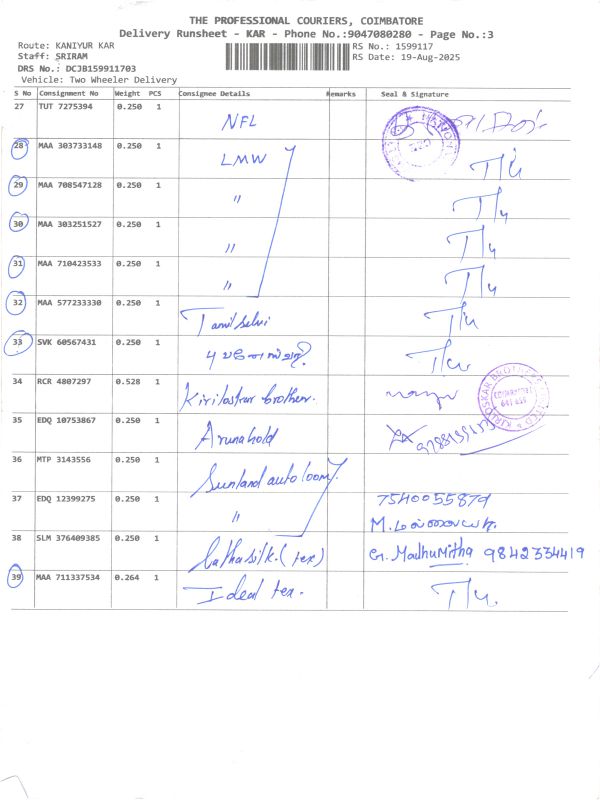 THE PROFESSIONAL COURIERS, COIMBATORE
Delivery Runsheet - KAR - Phone No.:9047080280 - Page No.:3
Route: KANIYUR KAR RS No.: 1599117
Staff: SRIRAM RS Date: 19-Aug-2025
DRS No.: DCJB159911703
Vehicle: Two Wheeler Delivery
S No Consignment No Weight PCS Consignee Details Remarks Seal & Signature
27 TUT 7275394 0.250 1 NFL
28 MAA 303733148 0.250 1 LMW
29 MAA 708547128 0.250 1 "
30 MAA 303251527 0.250 1 "
31 MAA 710423533 0.250 1 "
32 MAA 577233330 0.250 1 Tamil selvi
33 SVK 60567431 0.250 1
34 RCR 4807297 0.528 1 Kiriloskar brother.
35 EDQ 10753867 0.250 1 Arunahold
36 MTP 3143556 0.250 1 Sunland auto loom
37 EDQ 12399275 0.250 1 " 7540055879
38 SLM 376409385 0.250 1 Lathasilk. (tex) G. Madhumitha 9842334419
39 MAA 711337534 0.264 1 Ideal tex.